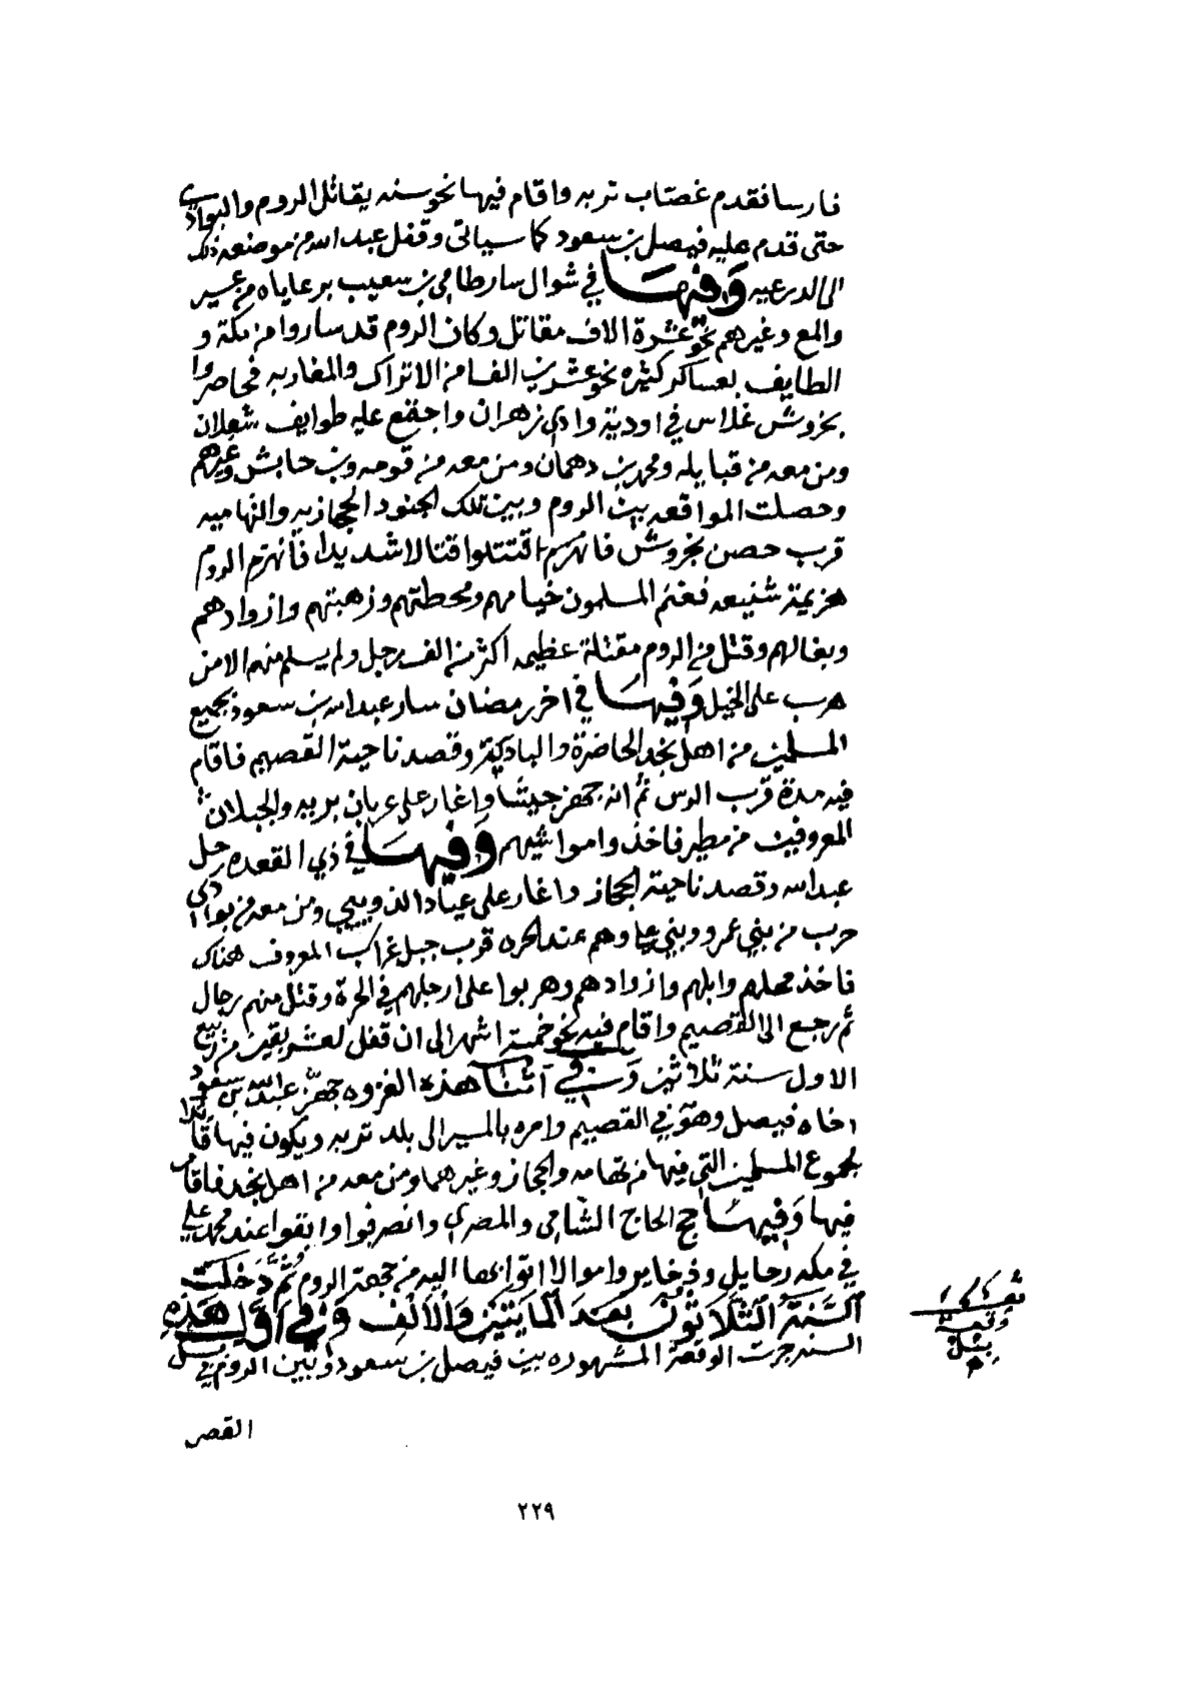 فارسا فقدم غصاب تربه واقام فيها نحو سنه يقاتل الروم والبوادي
حتى قدم عليه فيصل بن سعود كما سياتى وقفل عبد الله من موضعه ذلك
الى الدرعيه وفيها في شوال سار طامي بن شعيب برعاياه من عسير
والمع وغيرهم نحو عشرة الاف مقاتل وكان الروم قد ساروا من مكة و
الطايف بعساكر كثيره نحو عشرين الفا من الاتراك والمغاربه فحاصروا
بخروش علاس في اودية وادي زهران واجتمع عليه طوايف شعلان
ومن معه من قبايله ومحمد بن دهمان ومن معه من قومه وبن حابش وغيرهم
وحصلت المواقعه بين الروم وبين تلك الجنود الحجازيه والتهاميه
قرب حصن بخروش فانهزم اقتتلوا قتالا شديدا فانهزم الروم
هزيمة شنيعه فغنم المسلمون خيامهم ومحطتهم وزهبتهم وازوادهم
وبغالهم وقتل من الروم مقتلة عظيمه اكثر من الف رجل ولم يسلم منهم الا من
هرب على الخيل وفيها في اخر رمضان سار عبد الله بن سعود بجميع
المسلمين من اهل نجد الحاضرة والبادية وقصد ناحية القصيم فاقام
فيه مدة قرب الرس ثم انه جهز جيشا واغار على عربان بريه والجبلان
المعروفين من مطير فاخذوا مواشيهم وفيها في ذي القعده رحل
عبد الله وقصد ناحية الحجاز واغار على عياد الذويبي ومن معه من بوادي
حرب من بني عمرو وبني علي وهم عند الحره قرب جبل غراب المعروف هناك
فاخذ محلهم وابلهم وازوادهم وهربوا على ارجلهم في الحرة وقتل منهم رجال
ثم رجع الى القصيم واقام فيه نحو خمسة اشهر الى ان قفل لعشر بقين من ربيع
الاول سنة ثلاثين وفي اثنا هذه الغزوه جهز عبد الله بن سعود
اخاه فيصل وهو في القصيم وامره بالمسير الى بلد تربه ويكون فيها قائدا
لجموع المسلمين التي فيها من تهامه والحجاز وغيرهما ومن معه من اهل نجد فاقام
فيها وفيها حج الحاج الشامي والمصري وانصرفوا وابقوا عند محمد علي
في مكه رحايل وذخاير واموالا اتوا بها اليه من جهة الروم ثم دخلت
السنة الثلاثون بعد المايتين والالف وفي اول هذه
السنه جرت الوقعة المشهوره بين فيصل بن سعود وبين الروم في بسل
وقعة
بسل
القصر
٢٢٩